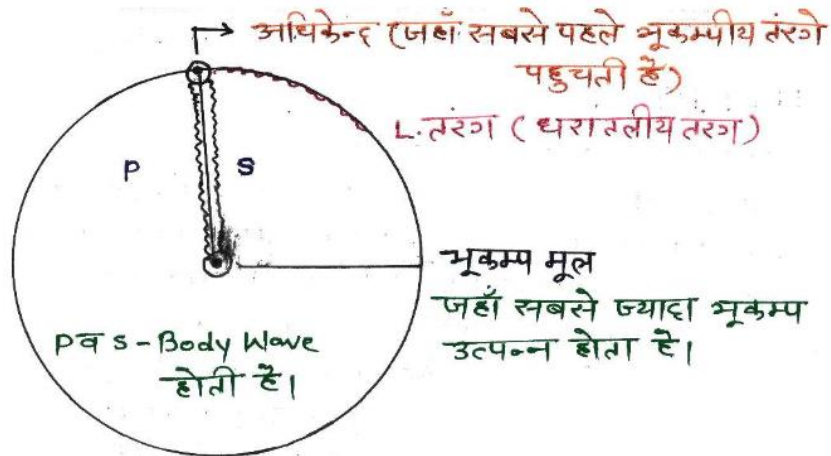 अधिकेन्द्र (जहाँ सबसे पहले भूकम्पीय तंरगे
पहुचती है)
L. तंरग ( धरातलीय तंरग )
P
S
भूकम्प मूल
जहाँ सबसे ज्यादा भूकम्प
उत्पन्न होता है।
P व S - Body Wave
होती है।